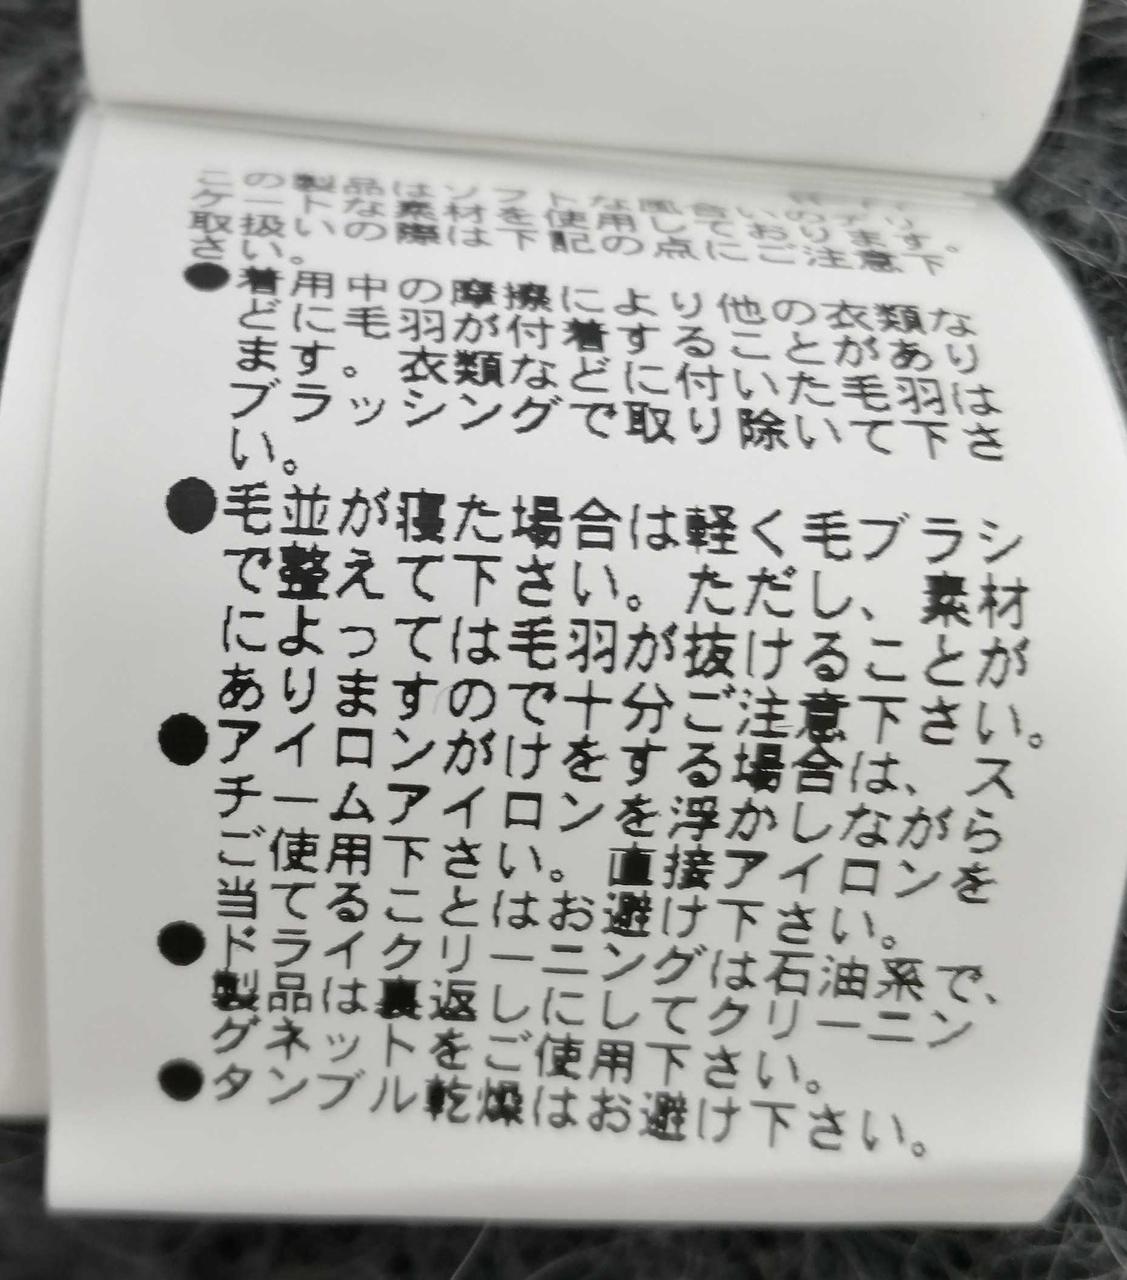 この製品はソフトな風合いのデリ
ケートな素材を使用しております。
取扱いの際は下記の点にご注意下
さい。
●着用中の摩擦により他の衣類な
どに毛羽が付着することがあり
ます。衣類などに付いた毛羽は
ブラッシングで取り除いて下さ
い。
●毛並が寝た場合は軽く毛ブラシ
で整えて下さい。ただし、素材
によっては毛羽が抜けることが
ありますので十分ご注意下さい。
●アイロンがけをする場合は、ス
チームアイロンを浮かしながら
ご使用下さい。直接アイロンを
当てることはお避け下さい。
●ドライクリーニングは石油系で、
製品は裏返しにしてクリーニン
グネットをご使用下さい。
●タンブル乾燥はお避け下さい。